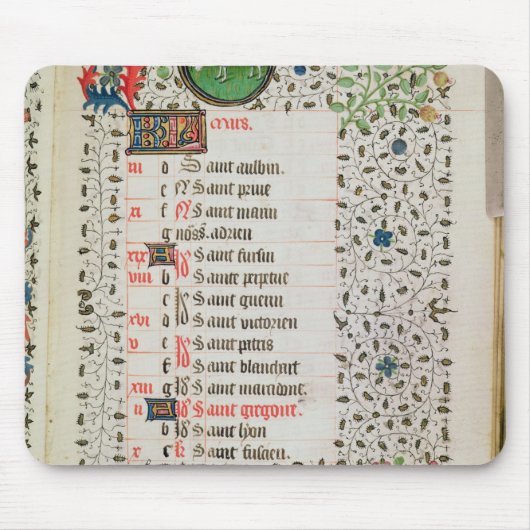 KL mars.
iii d Saint aulbin.
e N Saint priue
xi f N Saint marin
g noss. adrien
xix A Saint fursin
viii b Sainte perpetue
c Saint guerin
xvi d Saint victorien
v e Saint patris
f Saint blanchart
xiii g Saint macidont.
ii A Saint gregore.
b Saint lyon
x c k Saint fuscien.